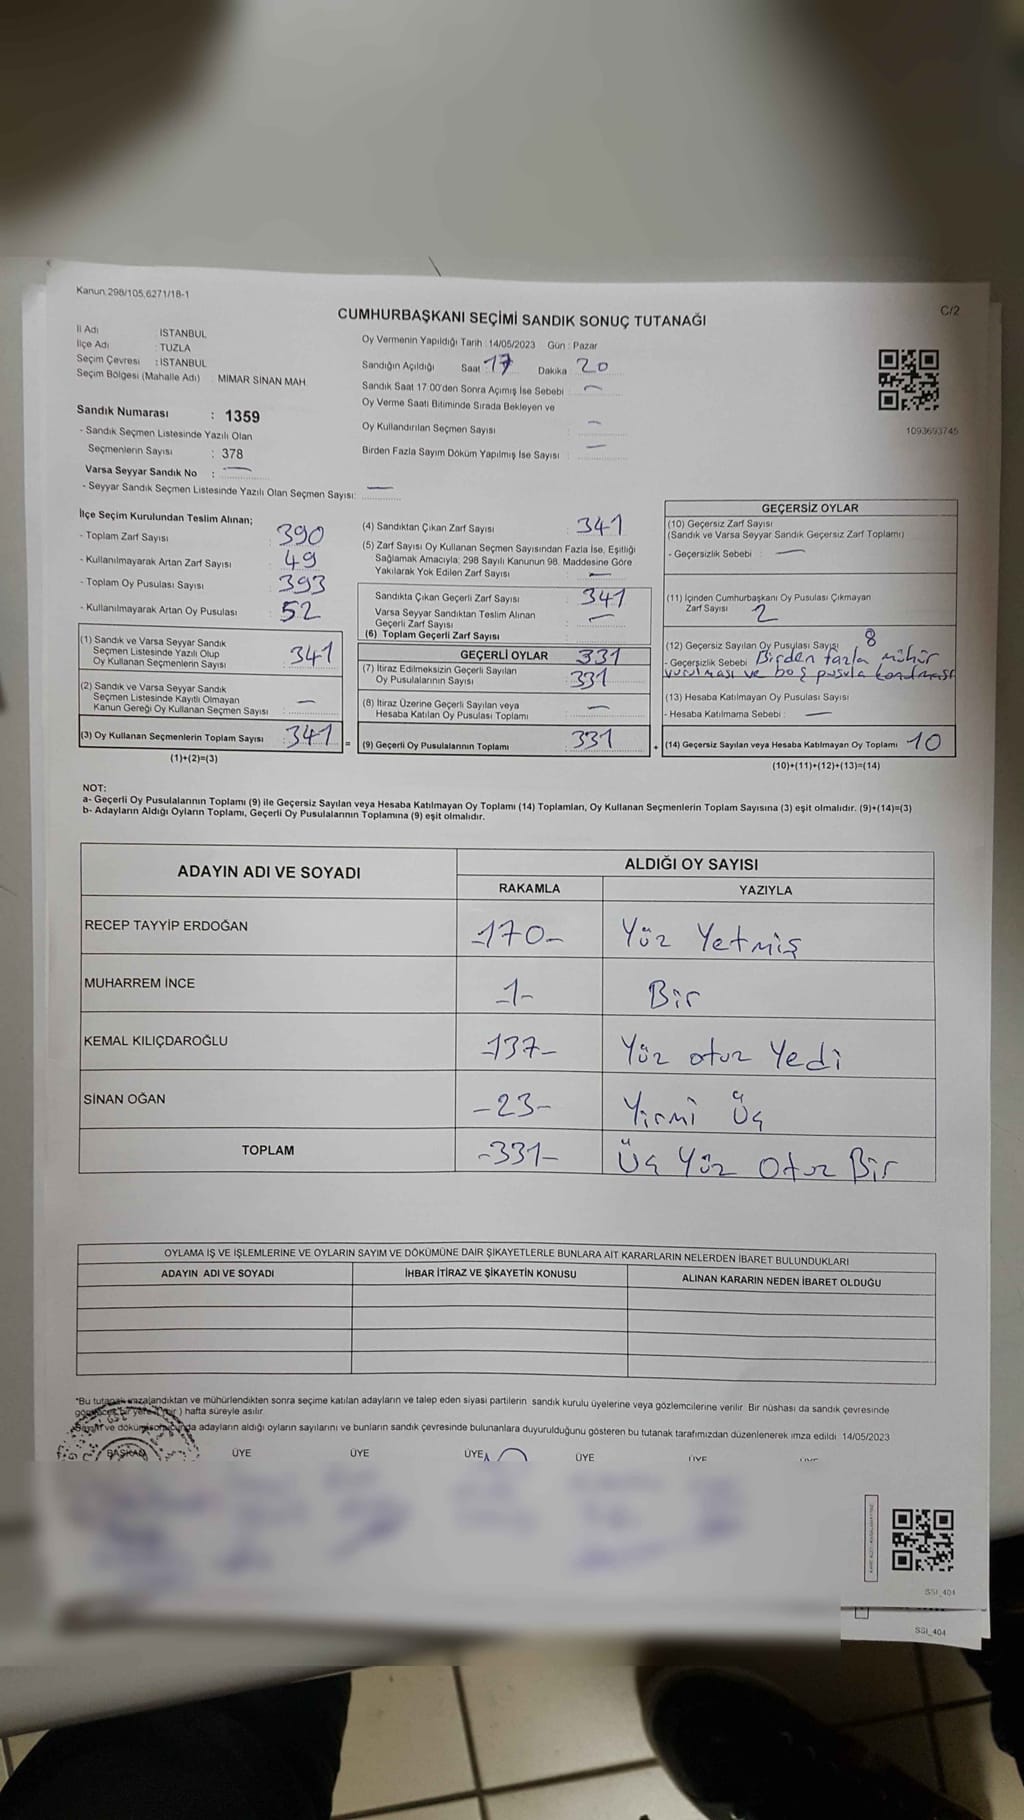 Kanun:298/105,6271/18-1
C/2
CUMHURBAŞKANI SEÇİMİ SANDIK SONUÇ TUTANAĞI
İl Adı : İSTANBUL
İlçe Adı : TUZLA
Seçim Çevresi : İSTANBUL
Seçim Bölgesi (Mahalle Adı) : MİMAR SİNAN MAH.
Sandık Numarası : 1359
- Sandık Seçmen Listesinde Yazılı Olan
Seçmenlerin Sayısı : 378
Varsa Seyyar Sandık No : —
- Seyyar Sandık Seçmen Listesinde Yazılı Olan Seçmen Sayısı: —
Oy Vermenin Yapıldığı Tarih : 14/05/2023 Gün : Pazar
Sandığın Açıldığı Saat : 17 Dakika : 20
Sandık Saat 17:00'den Sonra Açımış İse Sebebi : —
Oy Verme Saati Bitiminde Sırada Bekleyen ve
Oy Kullandırılan Seçmen Sayısı : —
Birden Fazla Sayım Döküm Yapılmış İse Sayısı : —
1093693745
İlçe Seçim Kurulundan Teslim Alınan;
- Toplam Zarf Sayısı : 390
- Kullanılmayarak Artan Zarf Sayısı : 49
- Toplam Oy Pusulası Sayısı : 393
- Kullanılmayarak Artan Oy Pusulası : 52
(1) Sandık ve Varsa Seyyar Sandık
Seçmen Listesinde Yazılı Olup
Oy Kullanan Seçmenlerin Sayısı : 341
(2) Sandık ve Varsa Seyyar Sandık
Seçmen Listesinde Kayıtlı Olmayan
Kanun Gereği Oy Kullanan Seçmen Sayısı : —
(3) Oy Kullanan Seçmenlerin Toplam Sayısı : 341 =
(1)+(2)=(3)
(4) Sandıktan Çıkan Zarf Sayısı : 341
(5) Zarf Sayısı Oy Kullanan Seçmen Sayısından Fazla İse, Eşitliği
Sağlamak Amacıyla; 298 Sayılı Kanunun 98. Maddesine Göre
Yakılarak Yok Edilen Zarf Sayısı : —
Sandıkta Çıkan Geçerli Zarf Sayısı : 341
Varsa Seyyar Sandıktan Teslim Alınan
Geçerli Zarf Sayısı : —
(6) Toplam Geçerli Zarf Sayısı :
GEÇERLİ OYLAR 331
(7) İtiraz Edilmeksizin Geçerli Sayılan
Oy Pusulalarının Sayısı : 331
(8) İtiraz Üzerine Geçerli Sayılan veya
Hesaba Katılan Oy Pusulası Toplamı : —
(9) Geçerli Oy Pusulalarının Toplamı : 331 +
GEÇERSİZ OYLAR
(10) Geçersiz Zarf Sayısı
(Sandık ve Varsa Seyyar Sandık Geçersiz Zarf Toplamı)
- Geçersizlik Sebebi : —
(11) İçinden Cumhurbaşkanı Oy Pusulası Çıkmayan
Zarf Sayısı : 2
(12) Geçersiz Sayılan Oy Pusulası Sayısı : 8
- Geçersizlik Sebebi Birden fazla mühür
vurulması ve boş pusula konulması
(13) Hesaba Katılmayan Oy Pusulası Sayısı
- Hesaba Katılmama Sebebi : —
(14) Geçersiz Sayılan veya Hesaba Katılmayan Oy Toplamı 10
(10)+(11)+(12)+(13)=(14)
NOT:
a- Geçerli Oy Pusulalarının Toplamı (9) ile Geçersiz Sayılan veya Hesaba Katılmayan Oy Toplamı (14) Toplamları, Oy Kullanan Seçmenlerin Toplam Sayısına (3) eşit olmalıdır. (9)+(14)=(3)
b- Adayların Aldığı Oyların Toplamı, Geçerli Oy Pusulalarının Toplamına (9) eşit olmalıdır.
ADAYIN ADI VE SOYADI
ALDIĞI OY SAYISI
RAKAMLA YAZIYLA
RECEP TAYYİP ERDOĞAN -170- Yüz Yetmiş
MUHARREM İNCE -1- Bir
KEMAL KILIÇDAROĞLU -137- Yüz otuz Yedi
SİNAN OĞAN -23- Yirmi Üç
TOPLAM -331- Üç Yüz Otuz Bir
OYLAMA İŞ VE İŞLEMLERİNE VE OYLARIN SAYIM VE DÖKÜMÜNE DAİR ŞİKAYETLERLE BUNLARA AİT KARARLARIN NELERDEN İBARET BULUNDUKLARI
ADAYIN ADI VE SOYADI İHBAR İTİRAZ VE ŞİKAYETİN KONUSU ALINAN KARARIN NEDEN İBARET OLDUĞU
*Bu tutanak imzalandıktan ve mühürlendikten sonra seçime katılan adayların ve talep eden siyasi partilerin sandık kurulu üyelerine veya gözlemcilerine verilir. Bir nüshası da sandık çevresinde
hafta süreyle asılır.
ve döküm adayların aldığı oyların sayılarını ve bunların sandık çevresinde bulunanlara duyurulduğunu gösteren bu tutanak tarafımızdan düzenlenerek imza edildi. 14/05/2023
BAŞKAN ÜYE ÜYE ÜYE ÜYE ÜYE
SSİ_404
SSİ_404